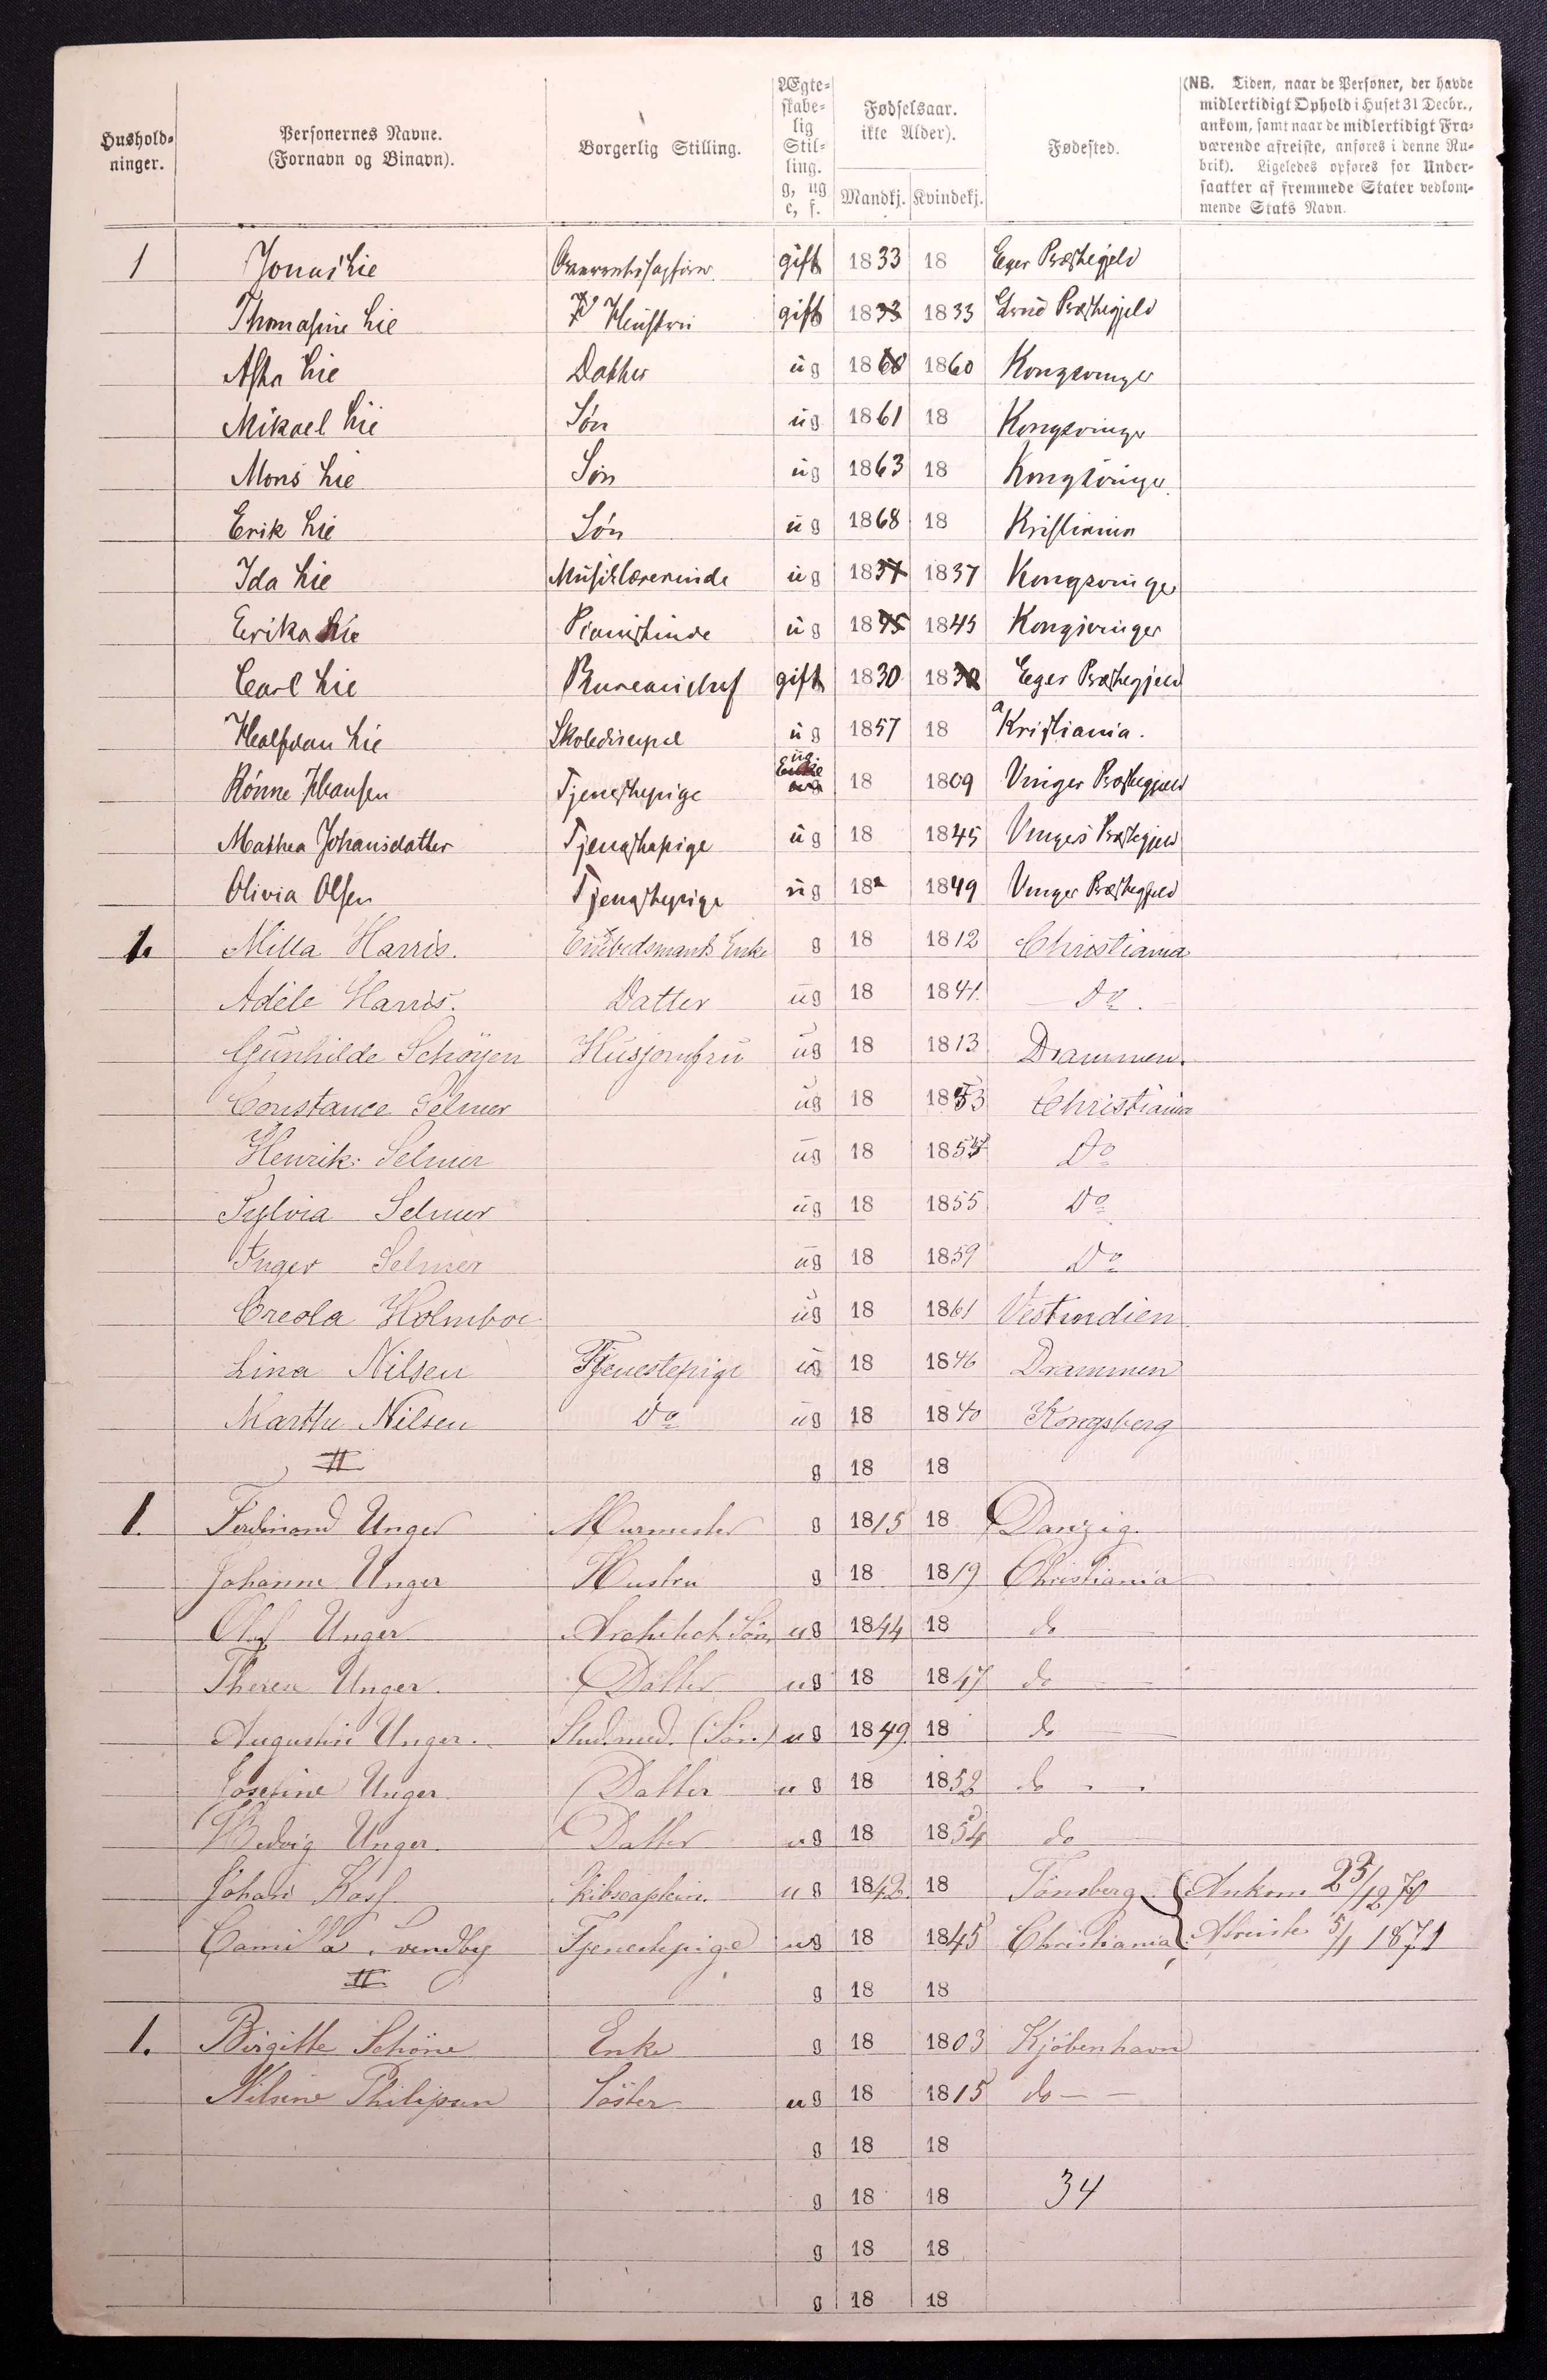 Hushold-
ninger.
Personernes Navne.
(Fornavn og Binavn).
Borgerlig Stilling.
Ægte-
skabe-
lig
Stil-
ling.
g, ug
e, f.
Fødselsaar.
ikke Alder).
Mandkj. Kvindekj.
Fødested.
(NB. Tiden, naar de Personer, der havde
midlertidigt Ophold i Huset 31 Decbr.,
ankom, samt naar de midlertidigt Fra-
værende afreiste, anføres i denne Ru-
brik). Ligeledes opføres for Under-
saatter af fremmede Stater vedkom-
mende Stats Navn.
1 Jonas Lie gift 1833 18 Eger Præstegjeld
Thomasine Lie Hustru gift 18 1833 Præstegjeld
Asta Lie Datter ug 18 1860 Kongsvinger
Mikael Lie Søn ug 1861 18 Kongsvinger
Mons Lie Søn ug 1863 18 Kongsvinger
Erik Lie Søn ug 1868 18 Kristiania
Ida Lie Musiklærerinde ug 18 1837 Kongsvinger
Erika Lie Pianistinde ug 18 1845 Kongsvinger
Carl Lie Bureauchef gift 1830 18 Eger Præstegjeld
Halfdan Lie Skolediscipel ug 1857 18 Kristiania.
Rønne Hansen Tjenestepige ug 18 1809 Vinger Præstegjeld
Mathea Johansdatter Tjenestepige ug 18 1845 Vinger Præstegjeld
Olivia Olsen Tjenestepige ug 18 1849 Vinger Præstegjeld
1. Milla Harris. Embedsmands Enke g 18 1812 Christiania
Adéle Harris. Datter ug 18 1841. Do.
Gunhilde Schøyen Husjomfru ug 18 1813 Drammen.
Constance Selmer ug 18 1853 Christiania
Henrik Selmer ug 18 185 Do
Sylvia Selmer ug 18 1855 Do
Inger Selmer ug 18 1859 Do
Creola Holmboe ug 18 1861 Vestindien
Lina Nilsen Tjenestepige ug 18 1846 Drammen
Marthe Nilsen Do ug 18 1840 Kongsberg
II g 18 18
1. Ferdinand Unger Murmester g 1815 18 Danzig.
Johanne Unger Hustru g 18 1819 Christiania
Olaf Unger Architect Søn ug 1844 18 do
Therese Unger. Datter ug 18 1847 do
Augustin Unger. Stud. med. (Søn.) ug 1849. 18 do
Josefine Unger Datter ug 18 1852 do
Hedvig Unger. Datter ug 18 1854 do
Johan Skibscaptein. ug 1842. 18 Tønsberg. Ankom 23/12 70
Camilla Svendby Tjenestepige ug 18 1845 Christiania Afreiste 5/1 1871
II g 18 18
1. Birgitte Schøne Enke g 18 1803 Kjøbenhavn
Nilsine Philipsen Søster ug 18 1815 do
g 18 18
g 18 18 34
g 18 18
g 18 18